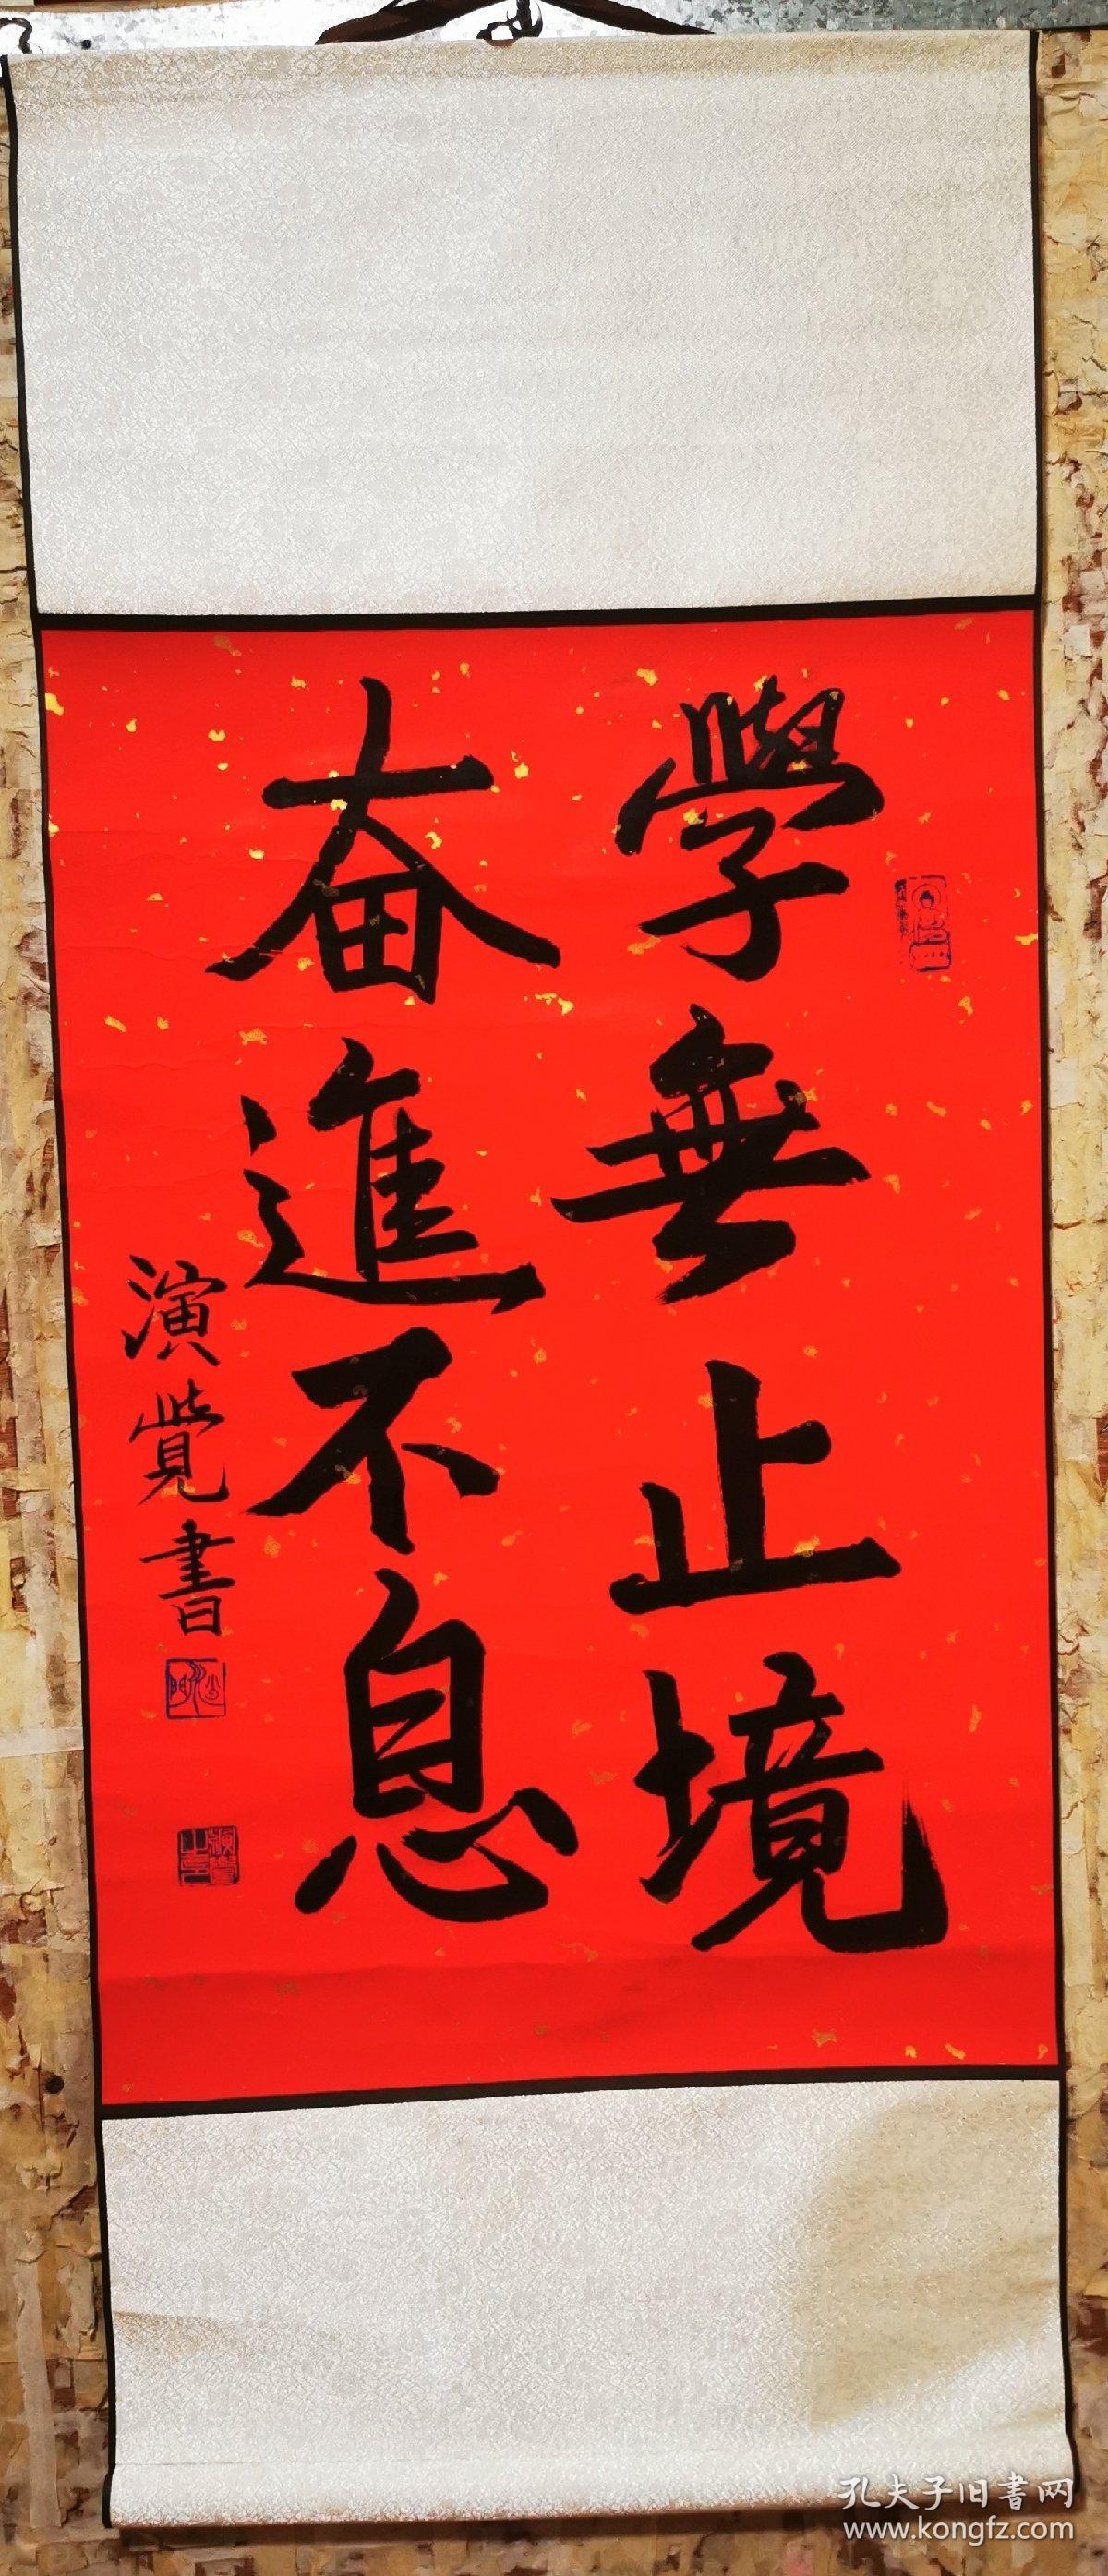 學無止境
奮進不息
演覺書
孔夫子旧書网
www.kongfz.com